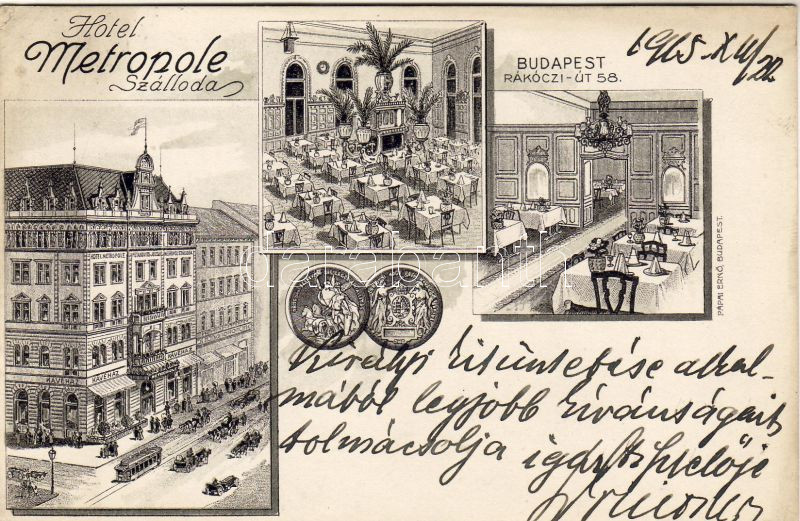 Hotel
Metropole
Szálloda
BUDAPEST
RÁKÓCZI-ÚT 58.
HOTEL METROPOLE
KÁVÉHÁZ
KÁVÉHÁZ
darabanth
PÁPAI ERNŐ, BUDAPEST.
Királyi kitüntetése alkal-
mából legjobb kívánságait
tolmácsolja igaz tisztelője